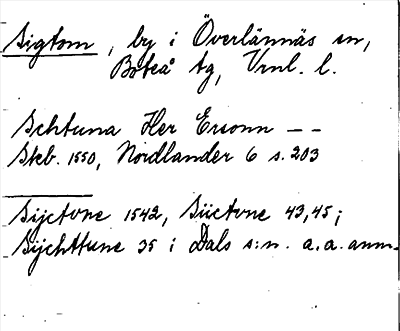 Sigtom, by i Överlännäs sn,
Boteå tg, Vrnl. l.
Schtuna Her Ersonn – –
Skb. 1550, Nordlander 6 s. 203
Sijctone 1542, Siictone 43, 45;
Sijchttune 35 i Dals s:n. a.a. anm.